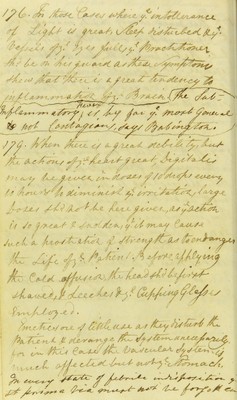 176. In those Cases where ye intolerance
of Light is great, Sleep disturbed & ye
Vessels of ye Eyes full, ye Practitioner
shd be on his guard as these Symptoms
shew that there is a great tendency to
inflammation of ye Brain. The Sub-
Inflammatory fever is, by far ye most general
& not Contagious, says Babington.
179. When there is a great debility, but
the actions of ye heart great, Digitalis
may be given in doses of 10 drops every
10 hours to diminish ye irritation, large
doses shd not be here given, as its action
is so great & sudden, yt it may cause
such a prostration of strength as to endanger
the Life of ye Patient. Before applying
the Cold affusion the head shd be first
shaved, & Leeches & ye Cupping Glasses
Employed.
Emetics are of little use as they disturb the
Patient & derange the System unnecessarily
for in this Case the Vascular System is
much affected but not ye Stomach.
In every state of febrile indisposition ye
state of primæ viæ must not be forgotten